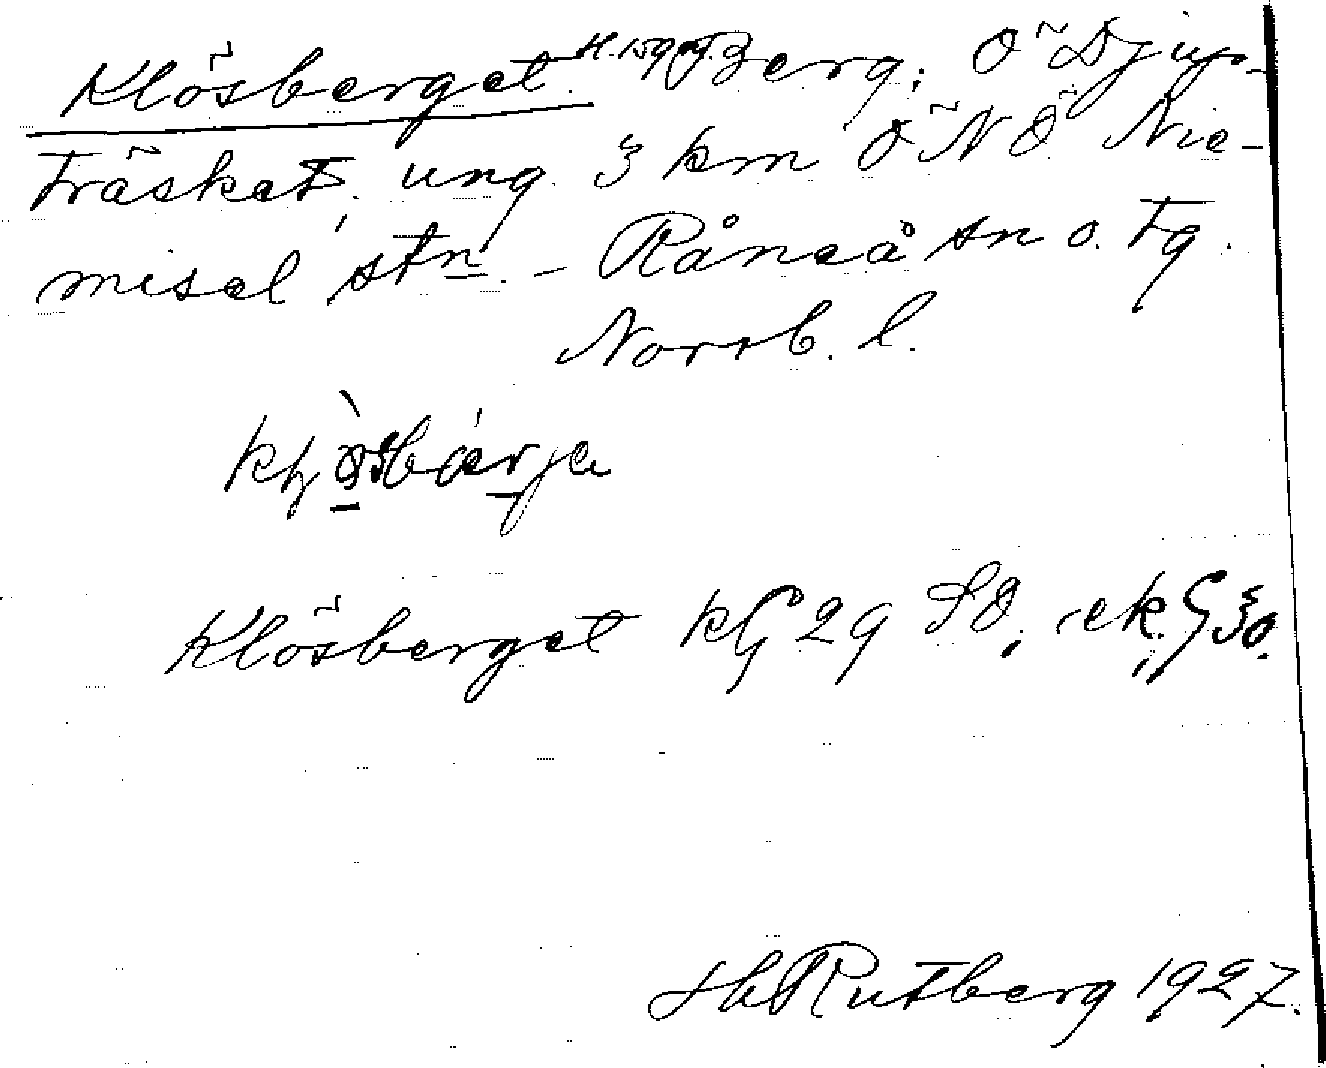 Klösberget. Berg; Ö Djup-
träsket, ung. 3 km ÖNÖ Nie-
misel stn. - Råneå sn o. tg.
Norrb. l.
Klösberget kg 29 SO, ek. 
Hb Rutberg 1927.